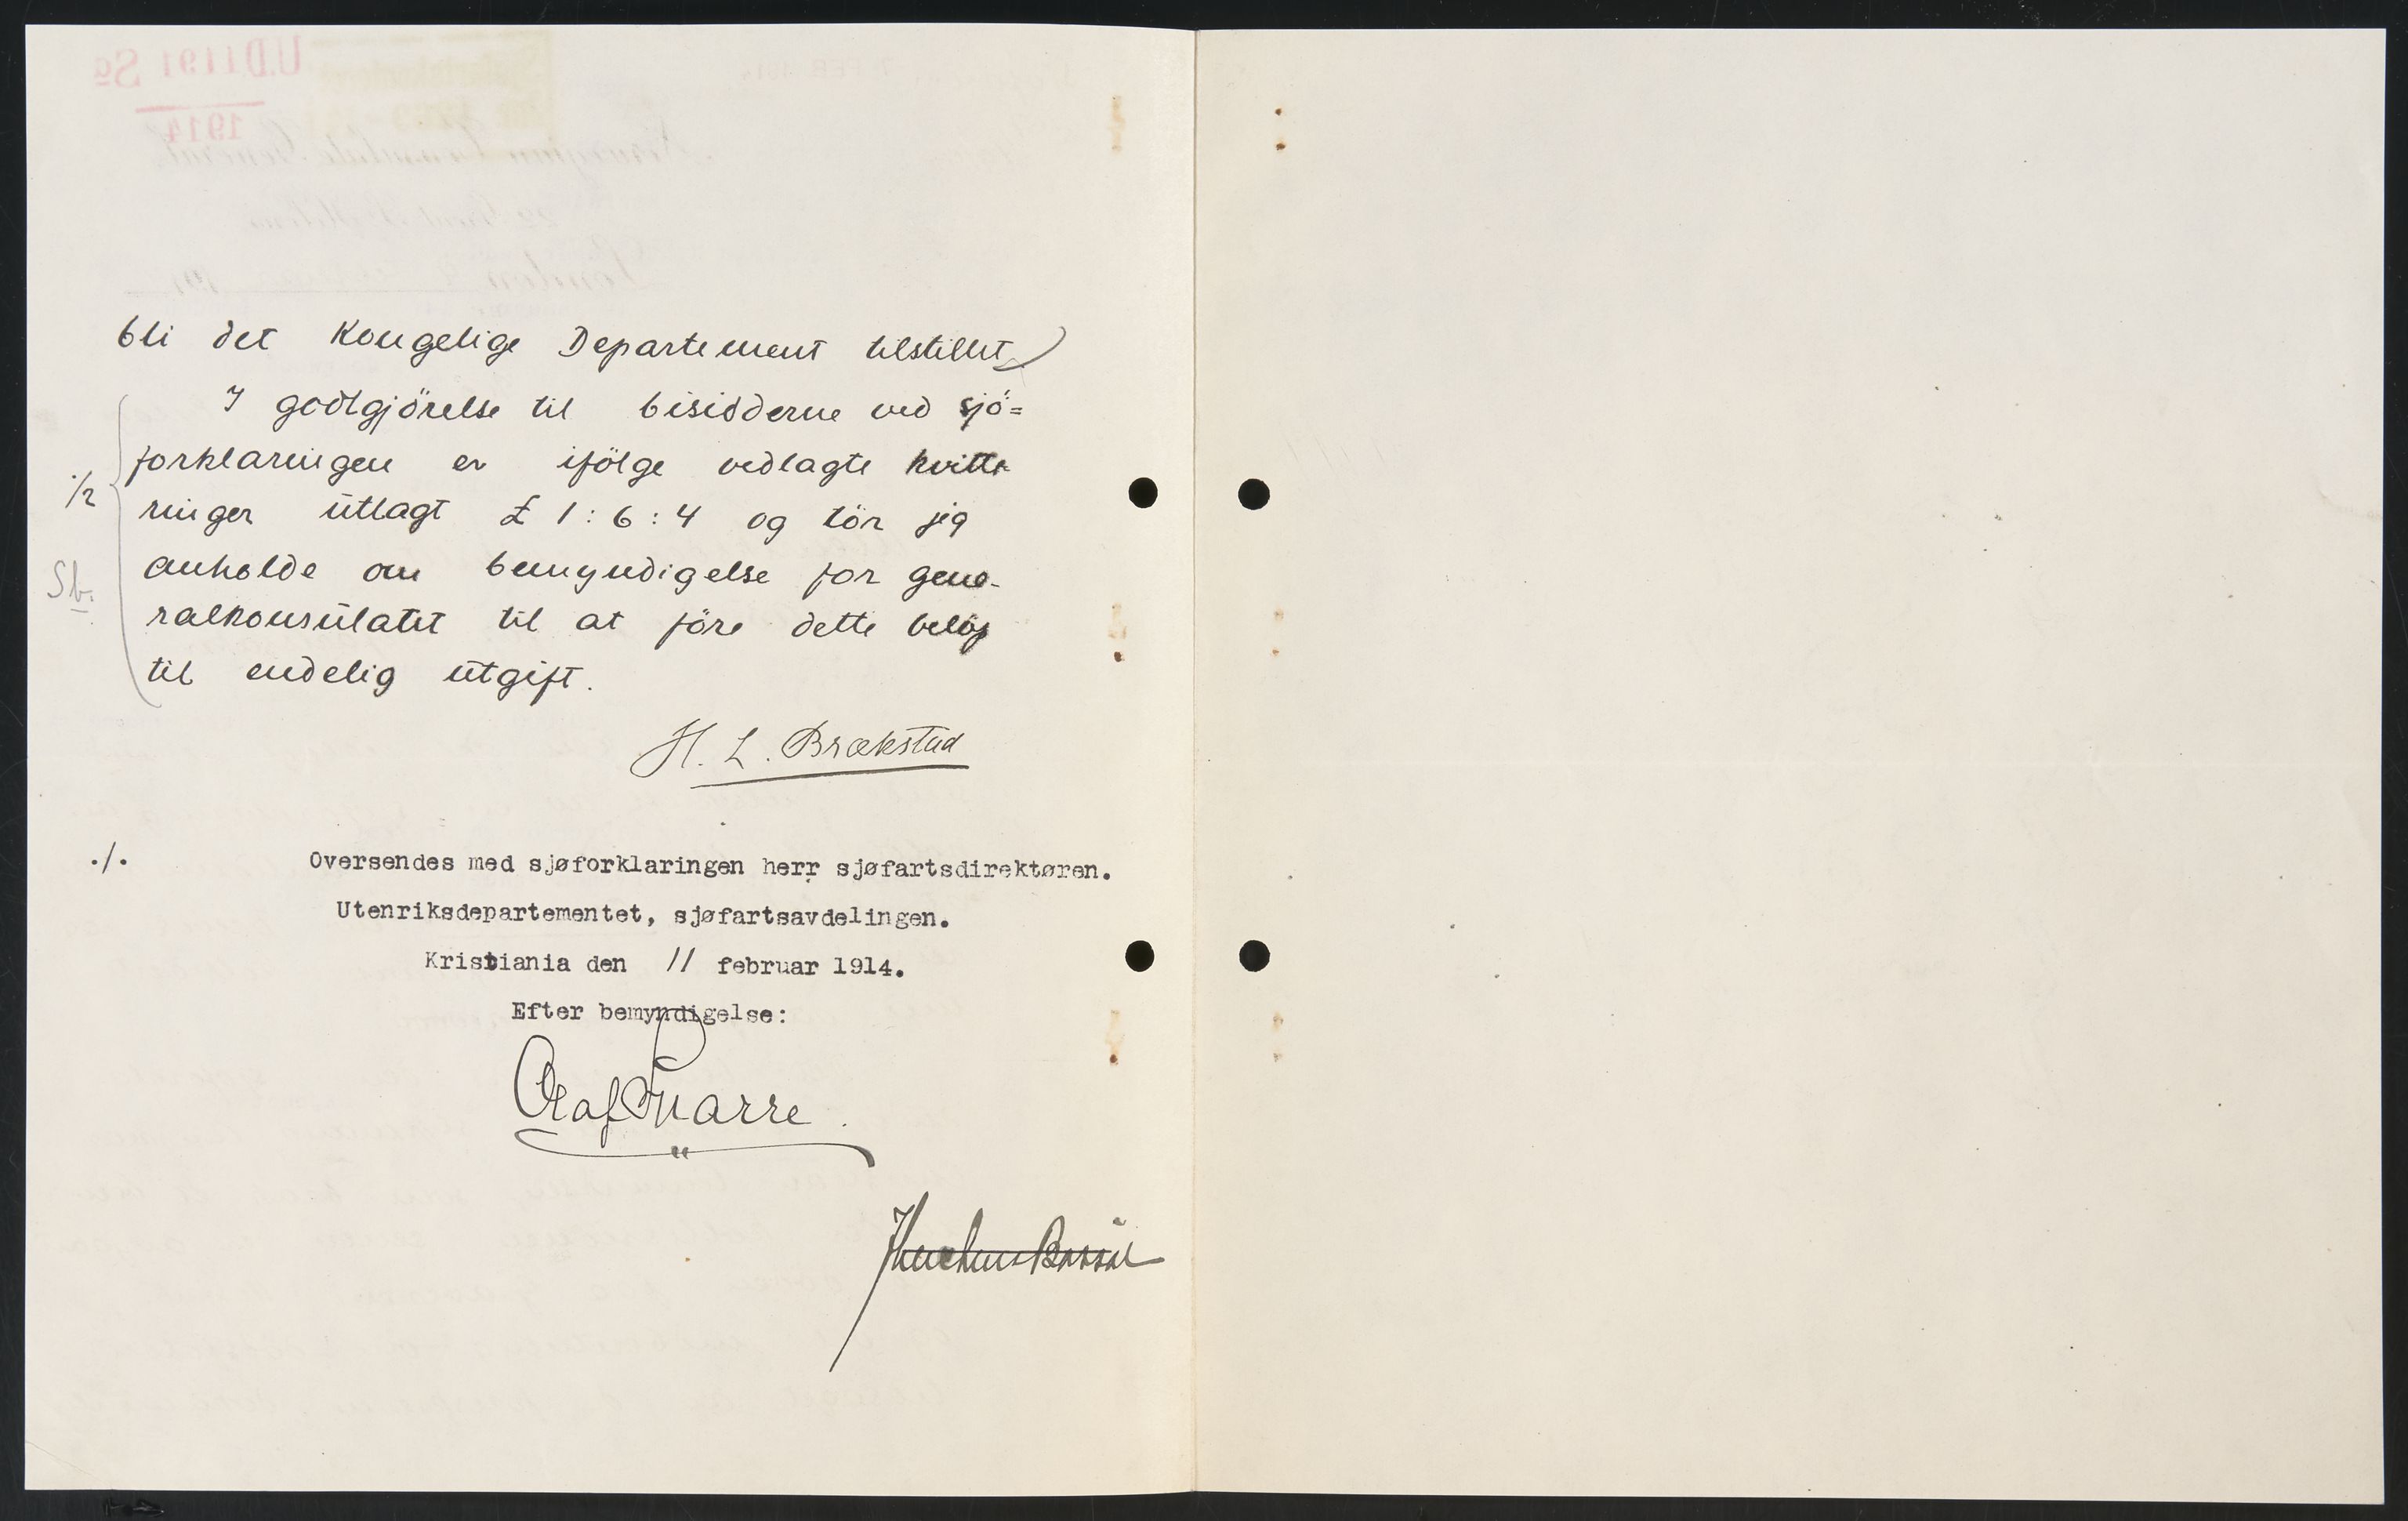 bli det Kongelige Departement tilstillet.
I godtgjörelse til bisidderne ved sjö=
forklaringen er ifölge vedlagte kvitte
ringer utlagt £ 1 : 6 : 4 og tör jeg
anholde om bemyndigelse for gene-
ralkonsulatet til at före dette belöp
til endelig utgift.
Sb.
H. L. Brækstad
./. Oversendes med sjøforklaringen herr sjøfartsdirektøren.
Utenriksdepartementet, sjøfartsavdelingen.
Kristiania den 11 februar 1914.
Efter bemyndigelse:
Olaf
UD 1191 Sg
1914